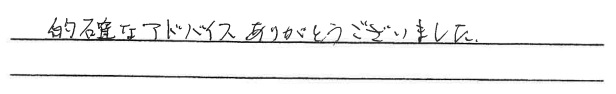 的確なアドバイスありがとうございました.